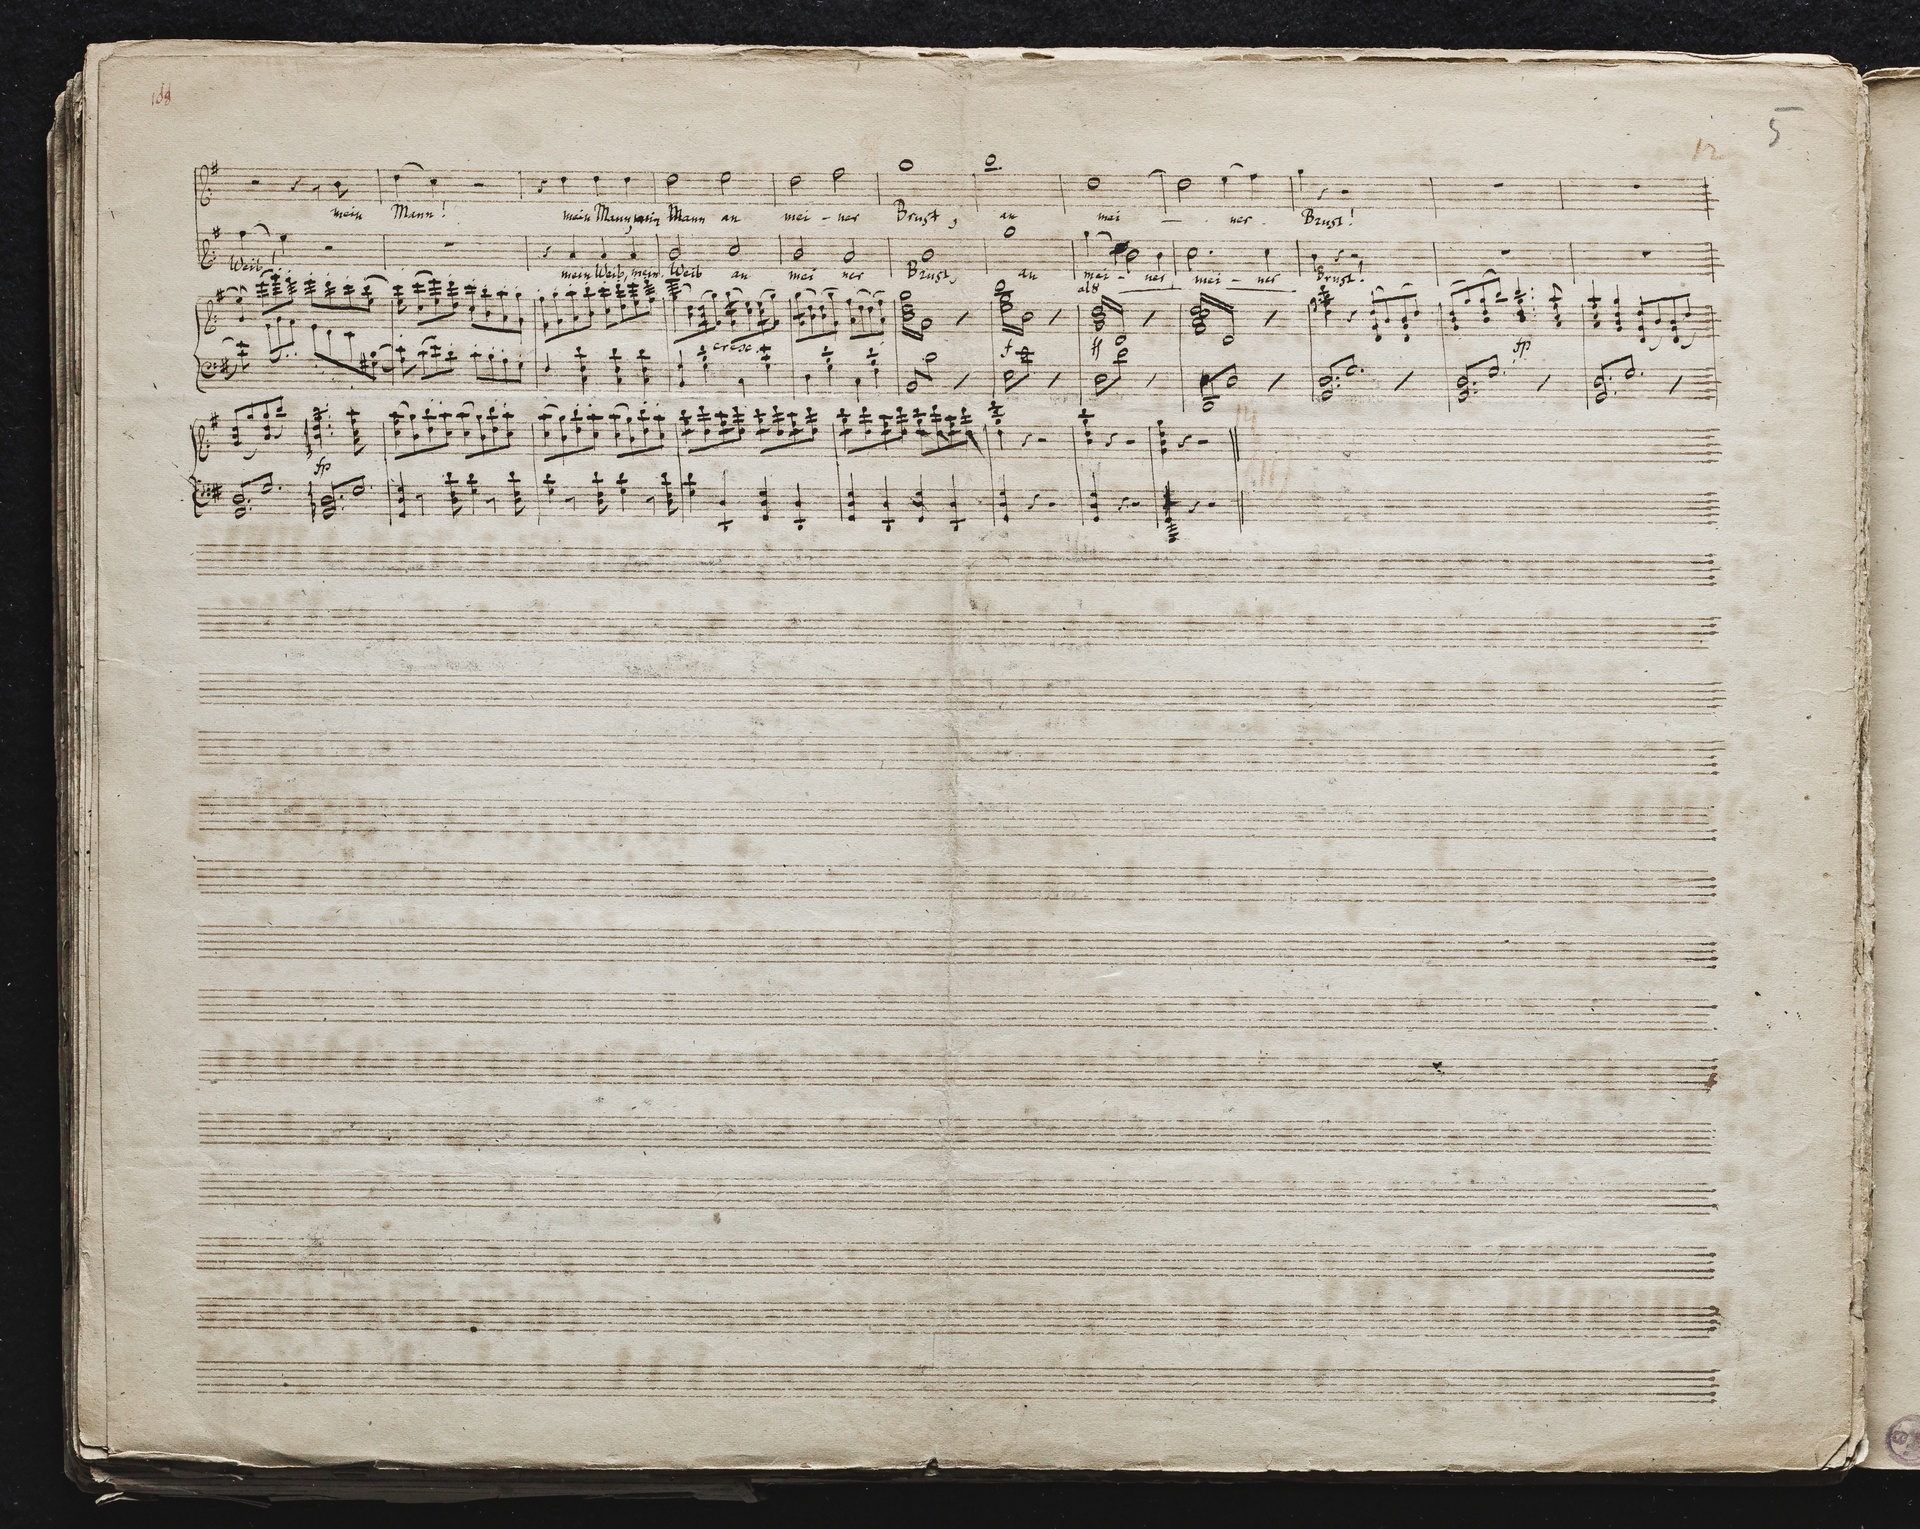 188
5
12
mein Mann! mein Mann, mein Mann an mei - ner Brust, an mei — ner Brust!
Weib! mein Weib, mein Weib an mei ner Brust, an mei - ner mei - ner Brust!
cresc. f ff fp
fp